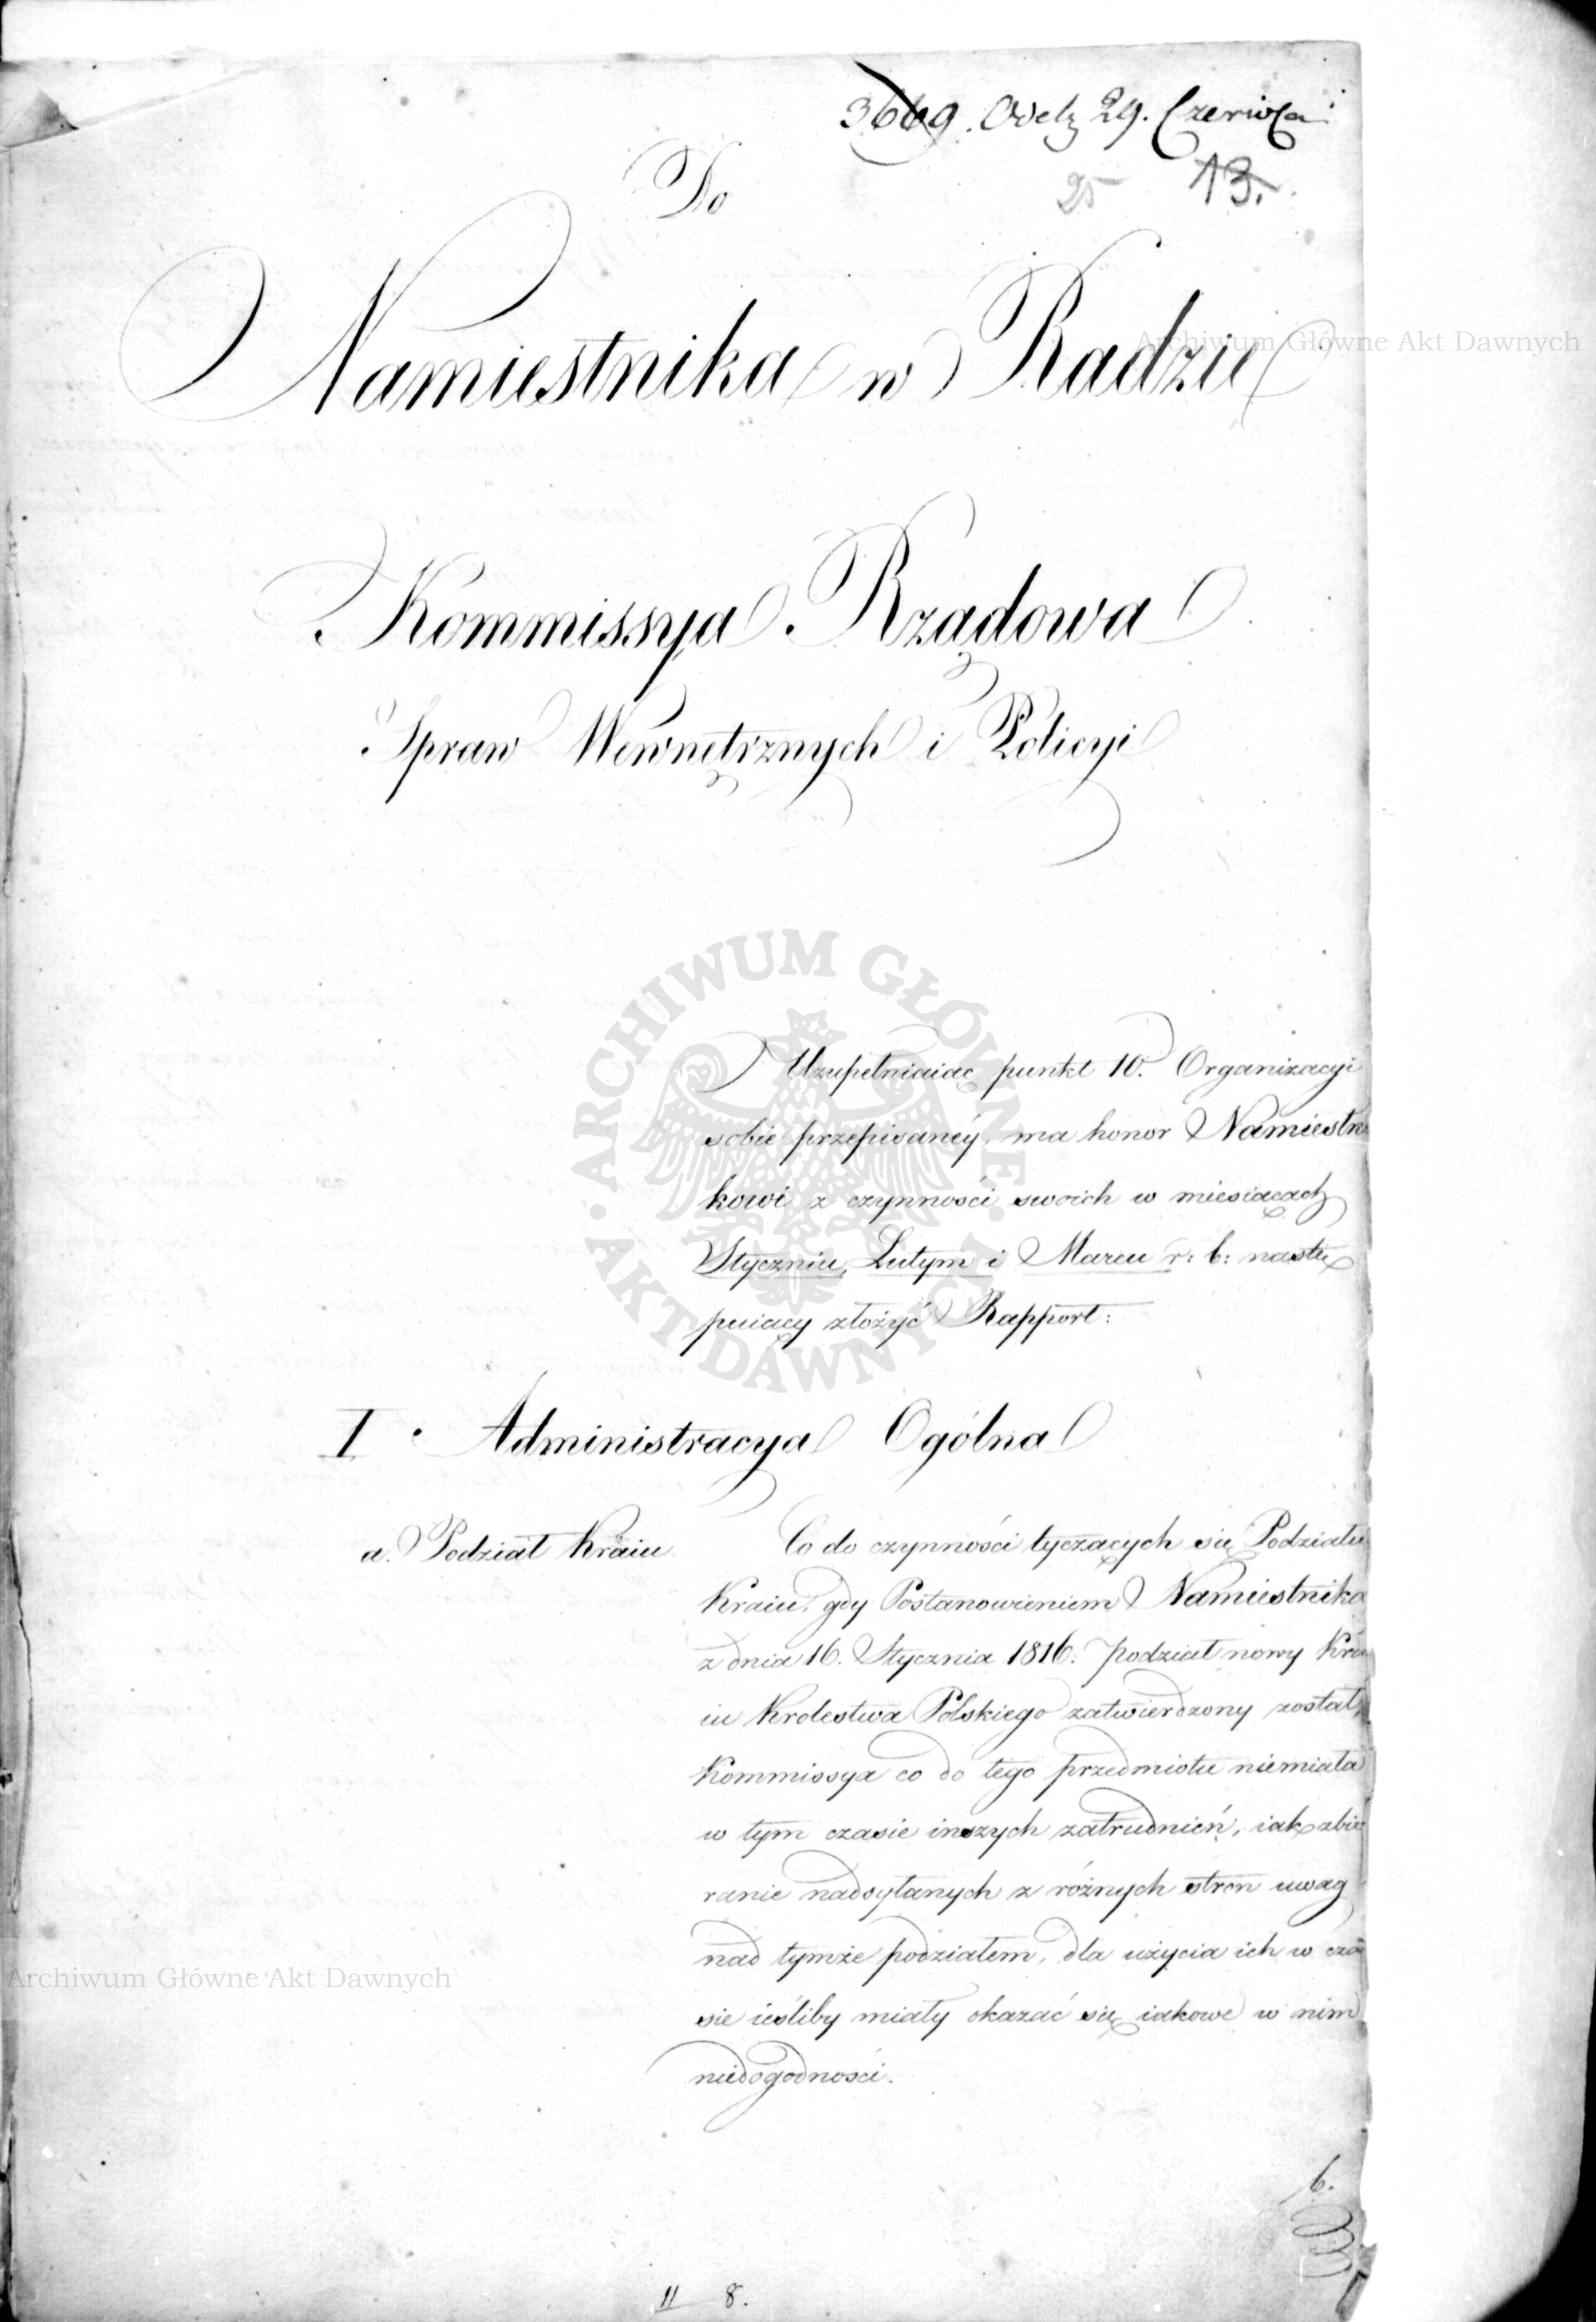 3669. 29. Czerwca
25 13.
Do
Namiestnika w Radzie
Archiwum Główne Akt Dawnych
Kommissya Rządowa
Spraw Wewnętrznych i Policyi
ARCHIWUM GŁÓWNE
AKT DAWNYCH
Uzupełniaiąc punkt 10. Organizacyi
sobie przepisanéy, ma honor Namiestni
kowi z czynności swoich w miesiącach
Styczniu, Lutym i Marcu r: b: nastę
puiący złożyć Rapport:
I. Administracya Ogólna
a. Podział Kraiu.
Co do czynności tyczących się Podziału
Kraiu, gdy Postanowieniem Namiestnika
z dnia 16. Stycznia 1816. podział nowy Kra
iu Krolestwa Polskiego zatwierdzony został,
Kommissya co do tego przedmiotu niemiała
w tym czasie inszych zatrudnień, iak zbie
ranie nadsyłanych z różnych stron uwag
nad tymże podziałem, dla użycia ich w cza
sie ieśliby miały okazać się iakowe w nim
niedogodności.
Archiwum Główne Akt Dawnych
b.
11 8.